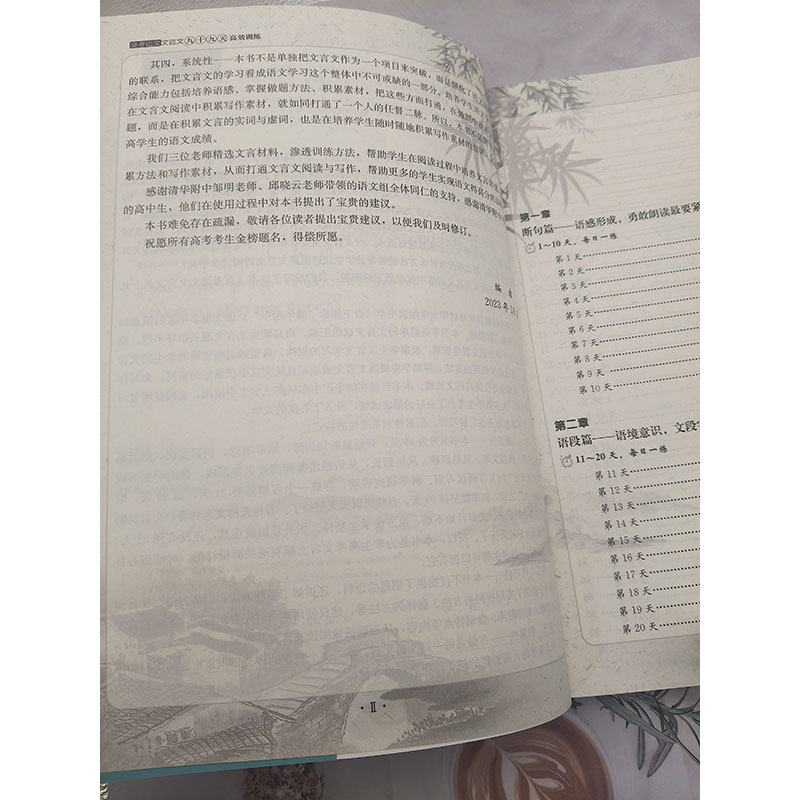 高考语文文言文九十九天高效训练
其四，系统性——本书不是单独把文言文作为一个项目来突破，而是强化了
的联系，把文言文的学习看成语文学习这个整体中不可或缺的一部分。培养学生
综合能力包括培养语感、掌握做题方法、积累素材，把这些方面打通，在做
在文言文阅读中积累写作素材，就如同打通了一个人的任督二脉。所以，本书不
题，而是在积累文言的实词与虚词，也是在培养学生随时随地积累写作素材的
高学生的语文成绩。
我们三位老师精选文言材料，渗透训练方法，帮助学生在阅读过程中培养文言
累方法和写作素材，从而打通文言文阅读与写作，帮助更多的学生实现语文得高分的
感谢清华附中邹明老师、邱晓云老师带领的语文组全体同仁的支持，感谢清华附
的高中生，他们在使用过程中对本书提出了宝贵的建议。
本书难免存在疏漏，敬请各位读者提出宝贵建议，以便我们及时修订。
祝愿所有高考考生金榜题名，得偿所愿。
编者
2023年10
·Ⅱ·
第一章
断句篇——语感形成，勇敢朗读最要紧
1～10天，每日一练
第1天
第2天
第3天
第4天
第5天
第6天
第7天
第8天
第9天
第10天
第二章
语段篇——语境意识，文段
11～20天，每日一练
第11天
第12天
第13天
第14天
第15天
第16天
第17天
第18天
第19天
第20天